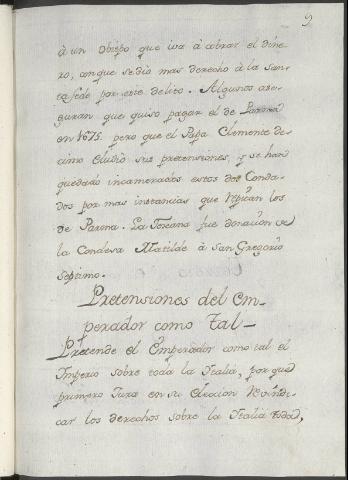 9
à un Obispo que iva à cobrar el dine-
ro, aunque se dio mas derecho à la San-
ta sede por este delito. Algunos ase-
guran que quiso pagar el de Parma
en 1675. pero que el Papa Clemente de-
cimo eludio sus pretensiones, y se han
quedado incamerados estos dos Conda-
dos por mas instancias que repitan los
de Parma. La Toscana fue donacion de
la Condesa Matilde à san Gregorio
septimo.
Pretensiones del em-
perador como tal
Pretende el Emperador como tal el
Imperio sobre toda la Italia, por que
primero Jura en su eleccion Reindi-
car los derechos sobre la Italia toda,